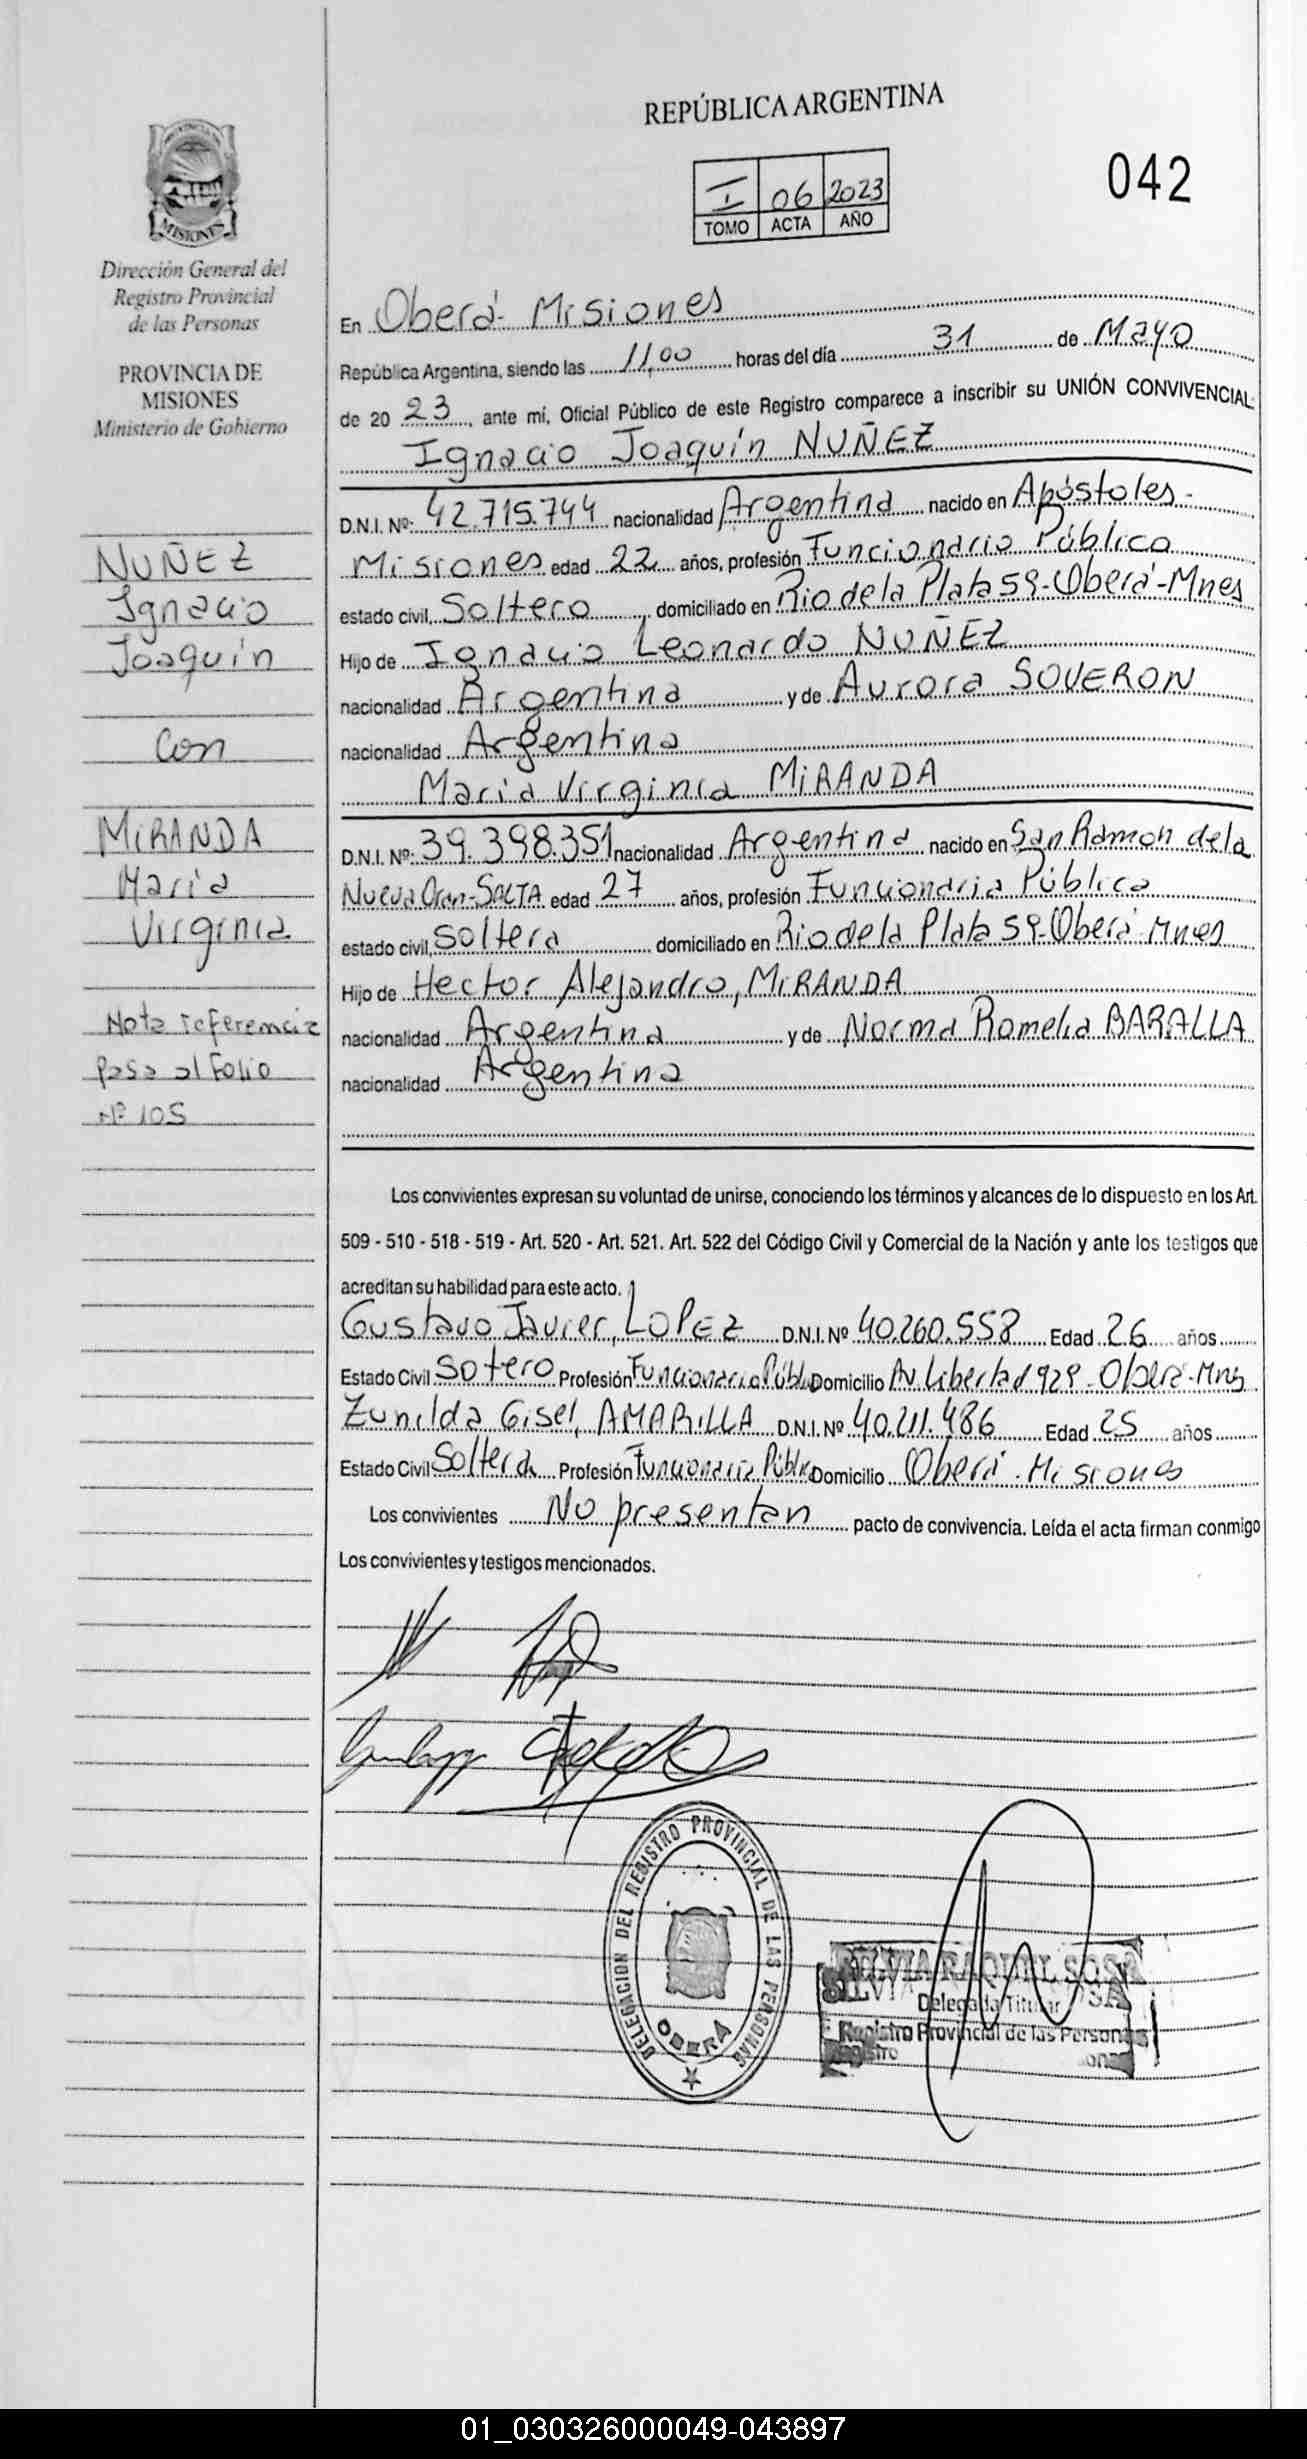 REPÚBLICA ARGENTINA
042
I 06 2023
TOMO ACTA AÑO
PROVINCIA DE
MISIONES
Dirección General del
Registro Provincial
de las Personas
PROVINCIA DE
MISIONES
Ministerio de Gobierno
NUÑEZ
Ignacio
Joaquín
Con
MIRANDA
Maria
Virginia
Nota referencia
Pasa al Folio
Nº 105
En Oberá- Misiones
República Argentina, siendo las 11,00 horas del día 31 de Mayo
de 20 23, ante mí, Oficial Público de este Registro comparece a inscribir su UNIÓN CONVIVENCIAL
Ignacio Joaquín NUÑEZ
D.N.I. Nº: 42.715.744 nacionalidad Argentina nacido en Apóstoles-
Misiones edad 22 años, profesión Funcionario Público
estado civil, Soltero, domiciliado en Rio de la Plata 59-Oberá-Mnes
Hijo de Ignacio Leonardo NUÑEZ
nacionalidad Argentina y de Aurora SOVERON
nacionalidad Argentina
Maria Virginia MIRANDA
D.N.I. Nº: 39.398.351 nacionalidad Argentina nacido en San Ramon de la
Nueva Oran-SALTA edad 27 años, profesión Funcionaria Pública
estado civil, Soltera domiciliado en Rio de la Plata 59-Oberá-Mnes
Hijo de Hector Alejandro, MIRANDA
nacionalidad Argentina y de Norma Romelia BARALLA
nacionalidad Argentina
Los convivientes expresan su voluntad de unirse, conociendo los términos y alcances de lo dispuesto en los Art.
509 - 510 - 518 - 519 - Art. 520 - Art. 521. Art. 522 del Código Civil y Comercial de la Nación y ante los testigos que
acreditan su habilidad para este acto.
Gustavo Javier, LOPEZ D.N.I. Nº 40.260.558 Edad 26 años
Estado Civil Sotero Profesión Funcionario Públ Domicilio Av. Libertad 929-Oberá-Mnes
Zunilda Gisel, AMARILLA D.N.I. Nº 40.211.486 Edad 25 años
Estado Civil Soltera Profesión Funcionaria Públic Domicilio Oberá-Misiones
Los convivientes No presentan pacto de convivencia. Leída el acta firman conmigo
Los convivientes y testigos mencionados.
DELEGACION DEL REGISTRO PROVINCIAL DE LAS PERSONAS
OBERÁ
SILVIA RAQUEL SOSA
Delegada Titular
Registro Provincial de las Personas
01_030326000049-043897